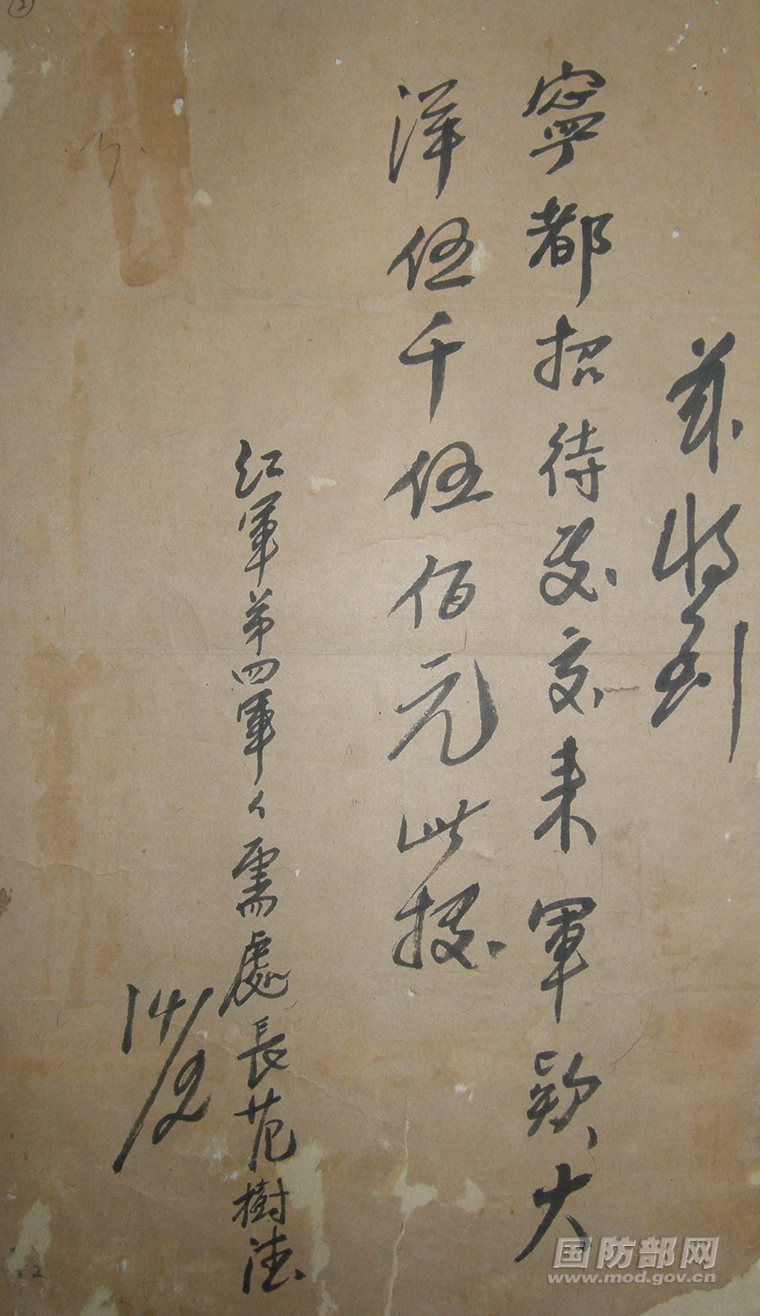 兹收到
寧都招待处交来軍款大
洋伍千伍佰元此据
紅軍第四軍々需處長范樹德
14/2
②
国防部网
www.mod.gov.cn